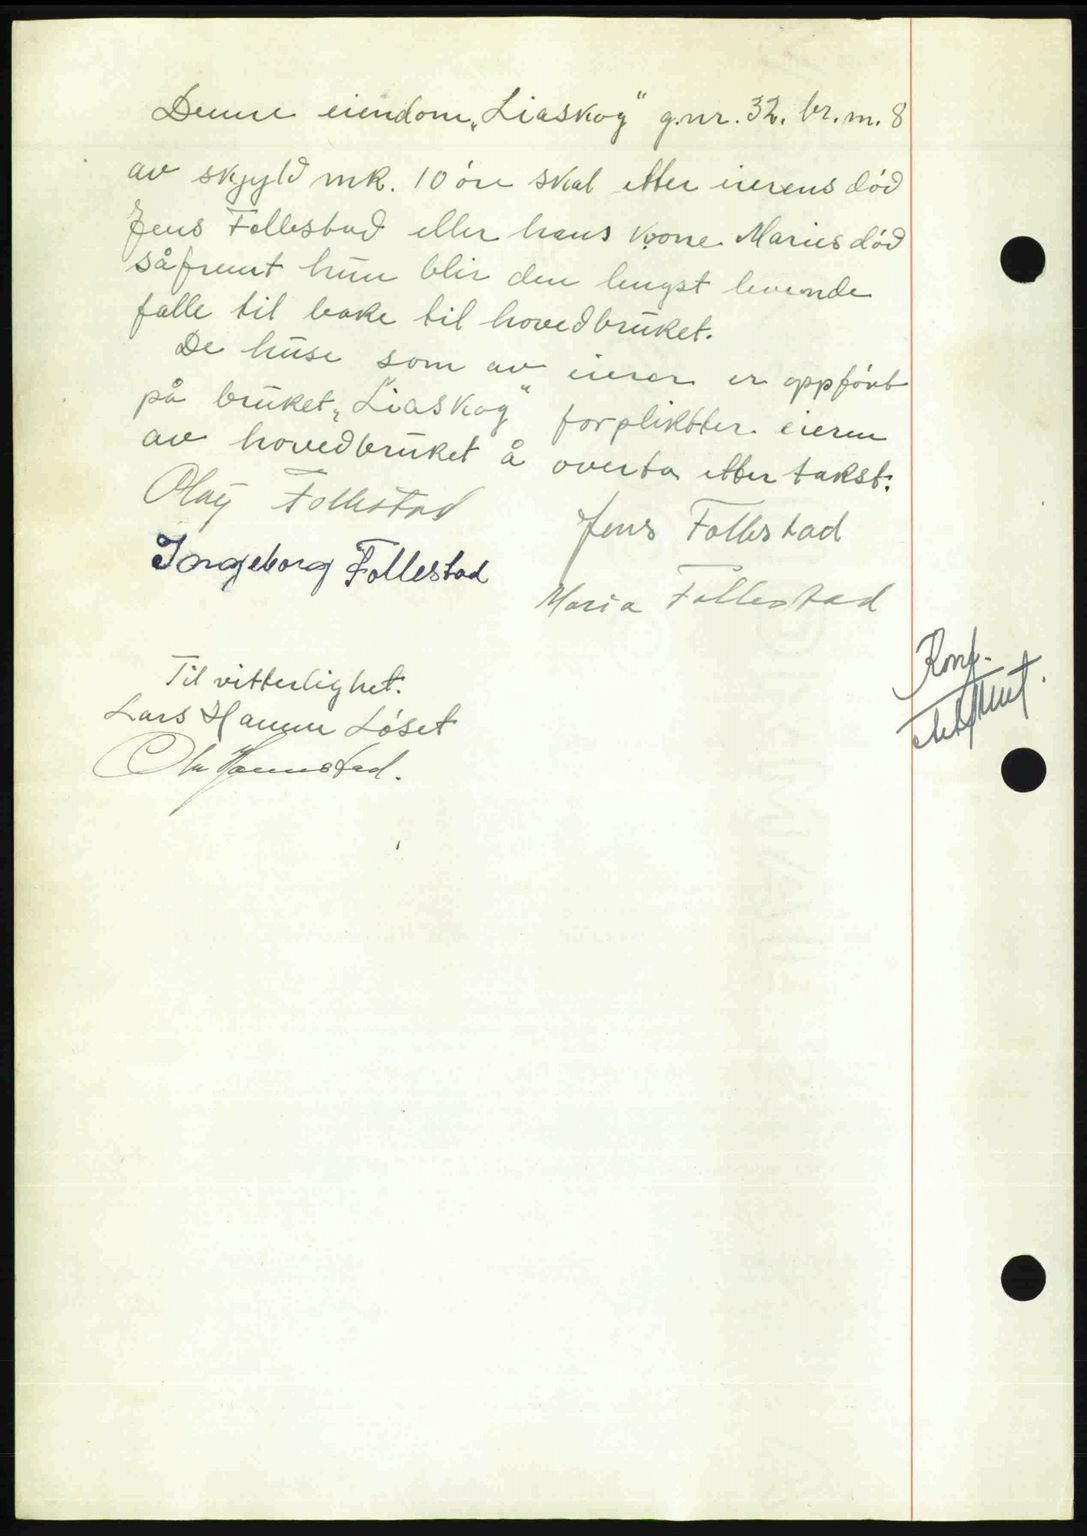 Denne eiendom „Liaskog" g.nr. 32. br.nr. 8
av skyld mk. 10 øre skal etter eierens død
Jens Follestad eller hans kone Maries død
såfremt hun blir den lengst levende
falle til bake til hovedbruket.
De huse som av eieren er oppført
på bruket „Liaskog" forpliktter eieren
av hovedbruket å overta etter takst.
Olay Follestad
Jens Follestad
Ingeborg Follestad
Maria Follestad
Konf.
Til vitterlighet.
Lars Hamn Løset
Ola Hammestad.